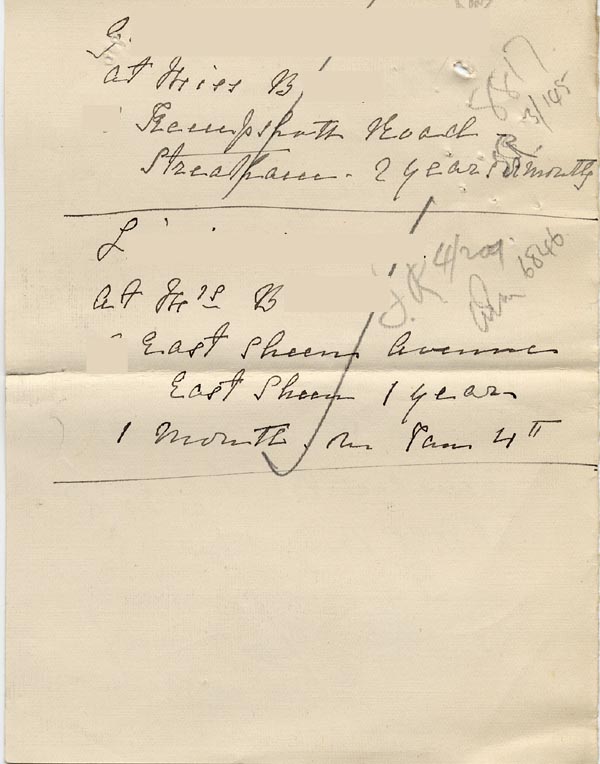 G
at Miss B
Kempshott Road
Streatham - 2 years 8 months
8817
3/145
L
at Mrs B
J.K 4/209.
6846
East Sheen Avenue
East Sheen 1 year
1 Month on Jan 4th